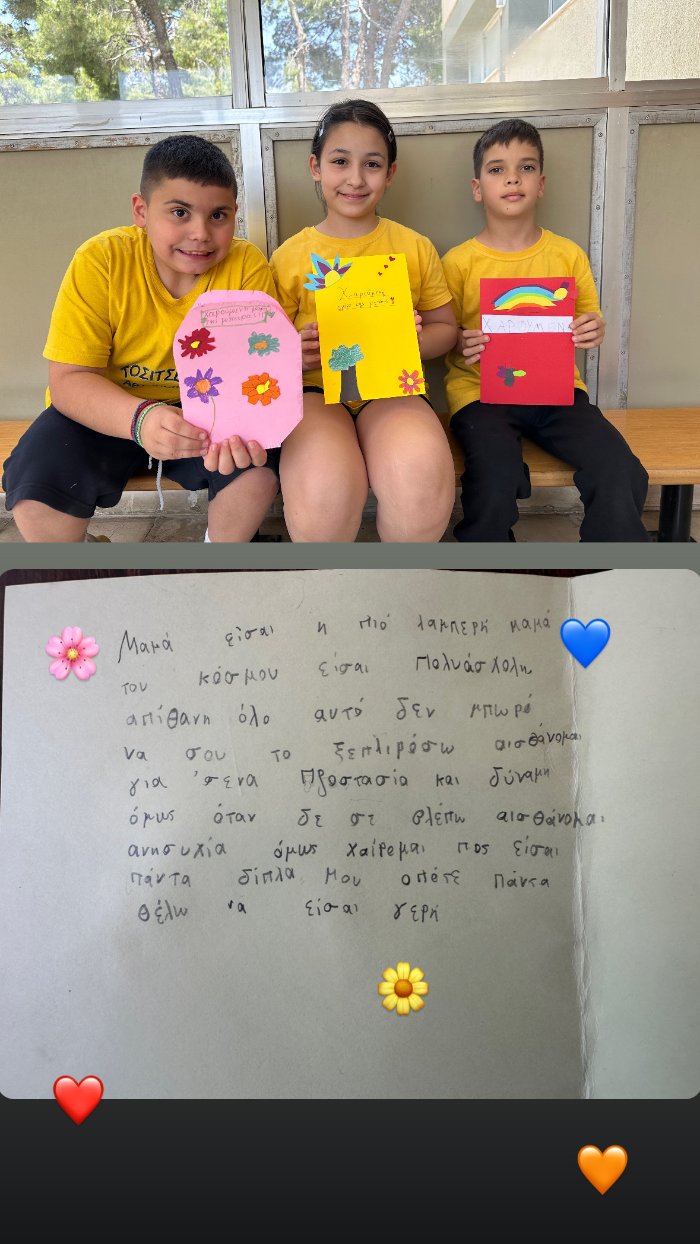 ΤΟΣΙΤΣΕ
Χαρούμενη
ΧΑΡΟΥΜΕΝ
Μαμά είσαι η πιό λαμπερή μαμά
του κόσμου είσαι πολυάσχολη
απίθανη όλο αυτό δεν μπωρό
να σου το ξεπλιρόσω αισθάνομαι
για 'σενα Προστασία και δύναμη
όμως όταν δε σε βλέπω αισθάνομαι
ανησυχία όμως χαίρεμαι πος είσαι
πάντα δίπλα μου οπότε πάντα
θέλω να είσαι γερή